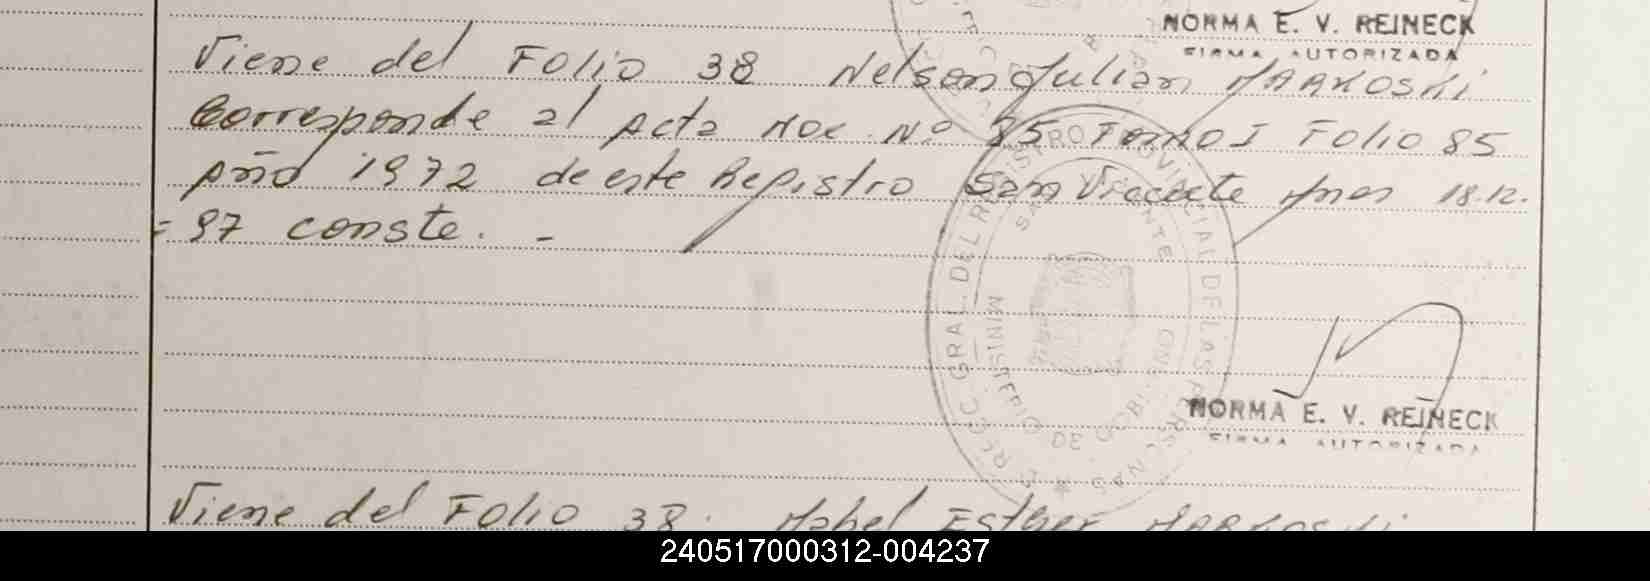 NORMA E. V. REINECK
FIRMA AUTORIZADA
Viene del Folio 38 Nelson Julian MARKOSKI
Corresponde al Acta Nac. Nº 85 Tomo I Folio 85
Año 1972 de este Registro San Vicente Mnes 18.12.
= 97 conste. -
DIRECC. GRAL. DEL REGISTRO PROVINCIAL DE LAS PERSONAS
SAN VICENTE
MINISTERIO DE GOBIERNO
NORMA E. V. REINECK
FIRMA AUTORIZADA
Viene del Folio 38. Mabel Esther MARKOSKI
240517000312-004237